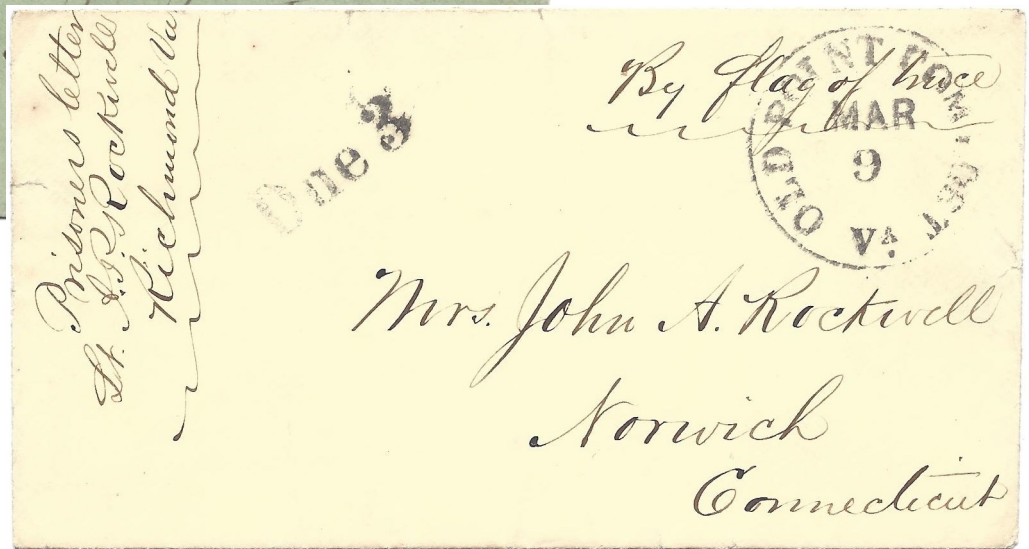 Prisoners letter
Lt. A. P. Rockwell
Richmond Va
Due 3
By flag of truce
OLD POINT COMFORT
MAR
9
Va.
Mrs. John A. Rockwell
Norwich
Connecticut